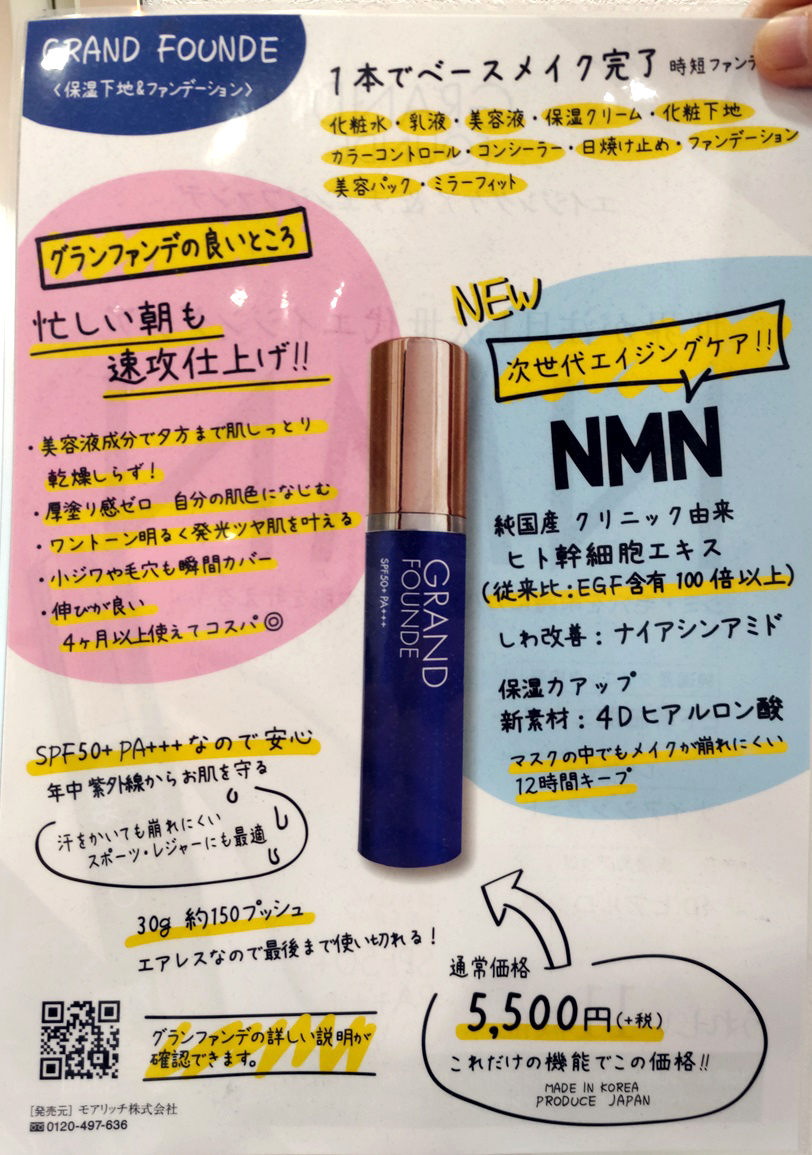 GRAND FOUNDE
〈保湿下地&ファンデーション〉
1本でベースメイク完了 時短ファンデ
化粧水・乳液・美容液・保湿クリーム・化粧下地
カラーコントロール・コンシーラー・日焼け止め・ファンデーション
美容パック・ミラーフィット
グランファンデの良いところ
忙しい朝も
速攻仕上げ!!
・美容液成分で夕方まで肌しっとり
乾燥しらず!
・厚塗り感ゼロ 自分の肌色になじむ
・ワントーン明るく発光ツヤ肌を叶える
・小ジワや毛穴も瞬間カバー
・伸びが良い
4ヶ月以上使えてコスパ◎
NEW
次世代エイジングケア!!
NMN
純国産 クリニック由来
ヒト幹細胞エキス
(従来比:EGF含有100倍以上)
しわ改善:ナイアシンアミド
保湿力アップ
新素材:4Dヒアルロン酸
マスクの中でもメイクが崩れにくい
12時間キープ
GRAND
FOUNDE
SPF50+ PA+++
SPF50+ PA+++なので安心
年中紫外線からお肌を守る
汗をかいても崩れにくい
スポーツ・レジャーにも最適
30g 約150プッシュ
エアレスなので最後まで使い切れる!
グランファンデの詳しい説明が
確認できます。
[発売元] モアリッチ株式会社
0120-497-636
通常価格
5,500円(+税)
これだけの機能でこの価格!!
MADE IN KOREA
PRODUCE JAPAN